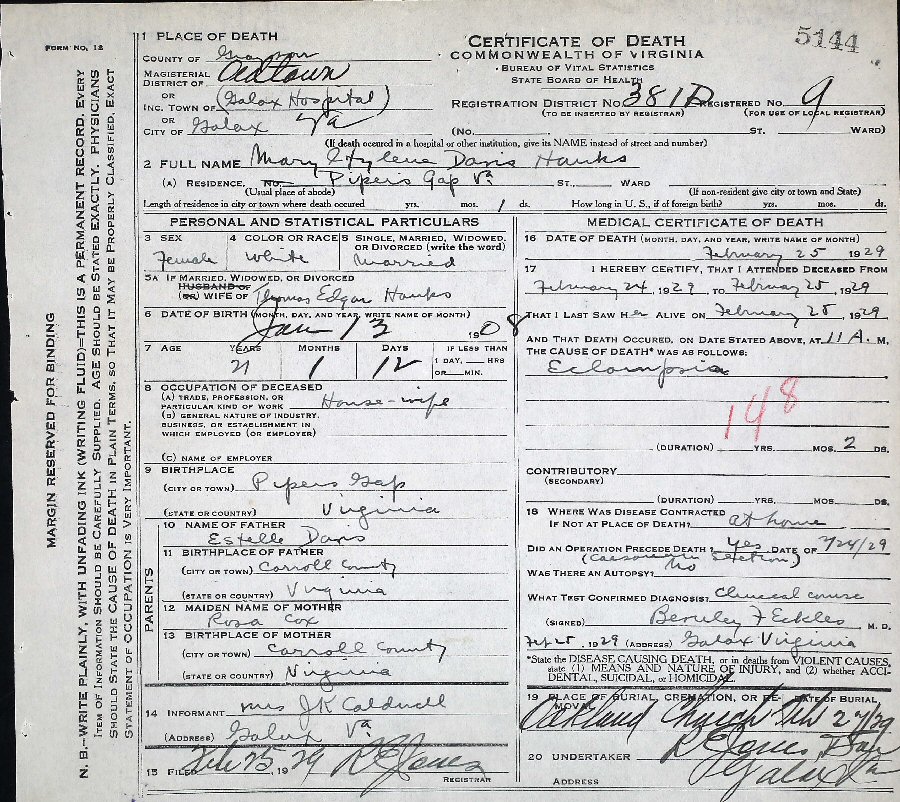 FORM NO. 12
5144
MARGIN RESERVED FOR BINDING
N. B.—WRITE PLAINLY, WITH UNFADING INK (WRITING FLUID)=THIS IS A PERMANENT RECORD. EVERY
ITEM OF INFORMATION SHOULD BE CAREFULLY SUPPLIED. AGE SHOULD BE STATED EXACTLY. PHYSICIANS
SHOULD STATE THE CAUSE OF DEATH IN PLAIN TERMS, SO THAT IT MAY BE PROPERLY CLASSIFIED. EXACT
STATEMENT OF OCCUPATION IS VERY IMPORTANT.
1 PLACE OF DEATH
COUNTY OF Grayson
MAGISTERIAL
DISTRICT OF
OR
INC. TOWN OF (Galax Hospital)
OR
CITY OF Galax Va
CERTIFICATE OF DEATH
COMMONWEALTH OF VIRGINIA
BUREAU OF VITAL STATISTICS
STATE BOARD OF HEALTH
REGISTRATION DISTRICT NO. 381D REGISTERED NO. 9
(TO BE INSERTED BY REGISTRAR) (FOR USE OF LOCAL REGISTRAR)
(NO. ST. WARD)
(If death occured in a hospital or other institution, give its NAME instead of street and number)
2 FULL NAME Mary Davis Hanks
(A) RESIDENCE, NO. Pipers Gap Va ST., WARD
(Usual place of abode) (If non-resident give city or town and State)
Length of residence in city or town where death occured yrs. mos. 1 ds. How long in U. S., if of foreign birth? yrs. mos. ds.
PERSONAL AND STATISTICAL PARTICULARS
3 SEX
Female
4 COLOR OR RACE
White
5 SINGLE, MARRIED, WIDOWED,
OR DIVORCED (write the word)
Married
5A IF MARRIED, WIDOWED, OR DIVORCED
HUSBAND OF
(OR) WIFE OF Thomas Edgar Hanks
6 DATE OF BIRTH (MONTH, DAY, AND YEAR, WRITE NAME OF MONTH)
Jan 13 1908
7 AGE YEARS MONTHS DAYS IF LESS THAN
21 1 12 1 DAY, HRS
OR MIN.
8 OCCUPATION OF DECEASED
(A) TRADE, PROFESSION, OR
PARTICULAR KIND OF WORK House-wife
(B) GENERAL NATURE OF INDUSTRY,
BUSINESS, OR ESTABLISHMENT IN
WHICH EMPLOYED (OR EMPLOYER)
(C) NAME OF EMPLOYER
9 BIRTHPLACE
(CITY OR TOWN) Pipers Gap
(STATE OR COUNTRY) Virginia
PARENTS
10 NAME OF FATHER
Estelle Davis
11 BIRTHPLACE OF FATHER
(CITY OR TOWN) Carroll County
(STATE OR COUNTRY) Virginia
12 MAIDEN NAME OF MOTHER
Rosa Cox
13 BIRTHPLACE OF MOTHER
(CITY OR TOWN) Carroll County
(STATE OR COUNTRY) Virginia
14 INFORMANT Mrs J K Caldwell
(ADDRESS) Galax Va
15 FILED Feb 25, 1929 R E Jones
REGISTRAR
MEDICAL CERTIFICATE OF DEATH
16 DATE OF DEATH (MONTH, DAY, AND YEAR, WRITE NAME OF MONTH)
February 25 1929
17 I HEREBY CERTIFY, THAT I ATTENDED DECEASED FROM
February 24, 1929, TO February 25, 1929
THAT I LAST SAW Her ALIVE ON February 25, 1929
AND THAT DEATH OCCURED, ON DATE STATED ABOVE, AT 11 A. M.
THE CAUSE OF DEATH* WAS AS FOLLOWS:
Eclampsia
148
(DURATION) YRS. MOS. 2 DS.
CONTRIBUTORY
(SECONDARY)
(DURATION) YRS. MOS. DS.
18 WHERE WAS DISEASE CONTRACTED
IF NOT AT PLACE OF DEATH? at home
DID AN OPERATION PRECEDE DEATH? yes DATE OF 2/24/29
(Caesarean Section)
WAS THERE AN AUTOPSY? No
WHAT TEST CONFIRMED DIAGNOSIS? Clinical course
(SIGNED) F Eckles M. D.
Feb 25, 1929 (ADDRESS) Galax Virginia
*State the DISEASE CAUSING DEATH, or in deaths from VIOLENT CAUSES,
state (1) MEANS AND NATURE OF INJURY, and (2) whether ACCI-
DENTAL, SUICIDAL, or HOMICIDAL.
19 PLACE OF BURIAL, CREMATION, OR RE- DATE OF BURIAL
MOVAL
Oakland Church Feb 27/29
20 UNDERTAKER R E Jones
ADDRESS Galax Va